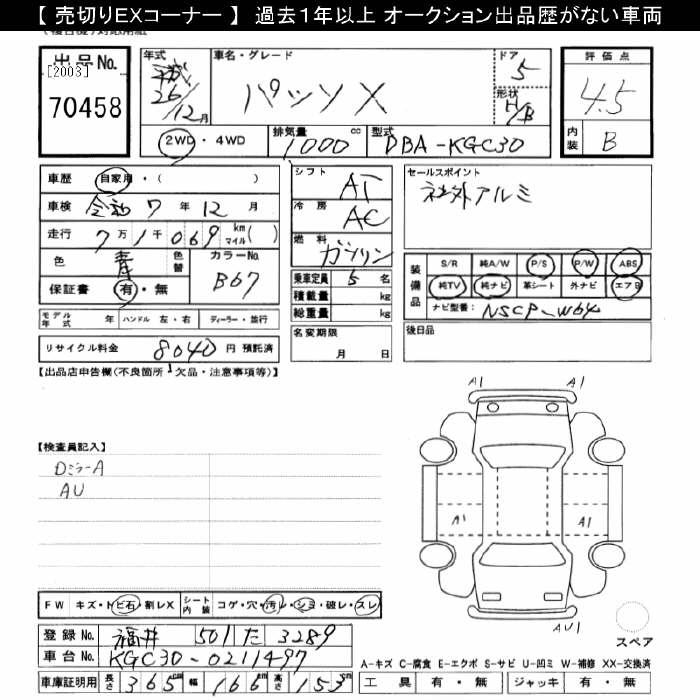 【 売切りEXコーナー 】 過去1年以上 オークション出品歴がない車両
出品No. [2003] 70458
年式 平成 26/12月
車名・グレード パッソX
ドア 5
形状 H/B
評価点 4.5
内装 B
2WD・4WD 排気量 1000 cc 型式 DBA-KGC30
車歴 自家用・( )
車検 令和 7年 12月
走行 7万 1千 069 km マイル( )
色 青 色替 カラーNo. B67
保証書 有・無
シフト AT
冷房 AC
燃料 ガソリン
乗車定員 5名
積載量 kg
総重量 kg
セールスポイント
社外アルミ
装備品 S/R 純A/W P/S P/W ABS
純TV 純ナビ 革シート 外ナビ エアB
ナビ型番: NSCP-W64
モデル年式 年 ハンドル 左・右 ディーラー・並行
名変期限 月 日
後日品
リサイクル料金 8040 円 預託済
【出品店申告欄(不良箇所・欠品・注意事項等)】
A1 A1
【検査員記入】
DミラーA
AU
A1 A1
FW キズ・トビ石・割レX シート内装 コゲ・穴・汚レ・シミ・破レ・スレ
AU1
スペア
登録No. 福井 501 た 3289
車台No. KGC30-0211497
A-キズ C-腐食 E-エクボ S-サビ U-凹ミ W-補修 XX-交換済
車庫証明用 長さ 365cm 幅 166cm 高さ 153cm
工具 有・無 ジャッキ 有・無